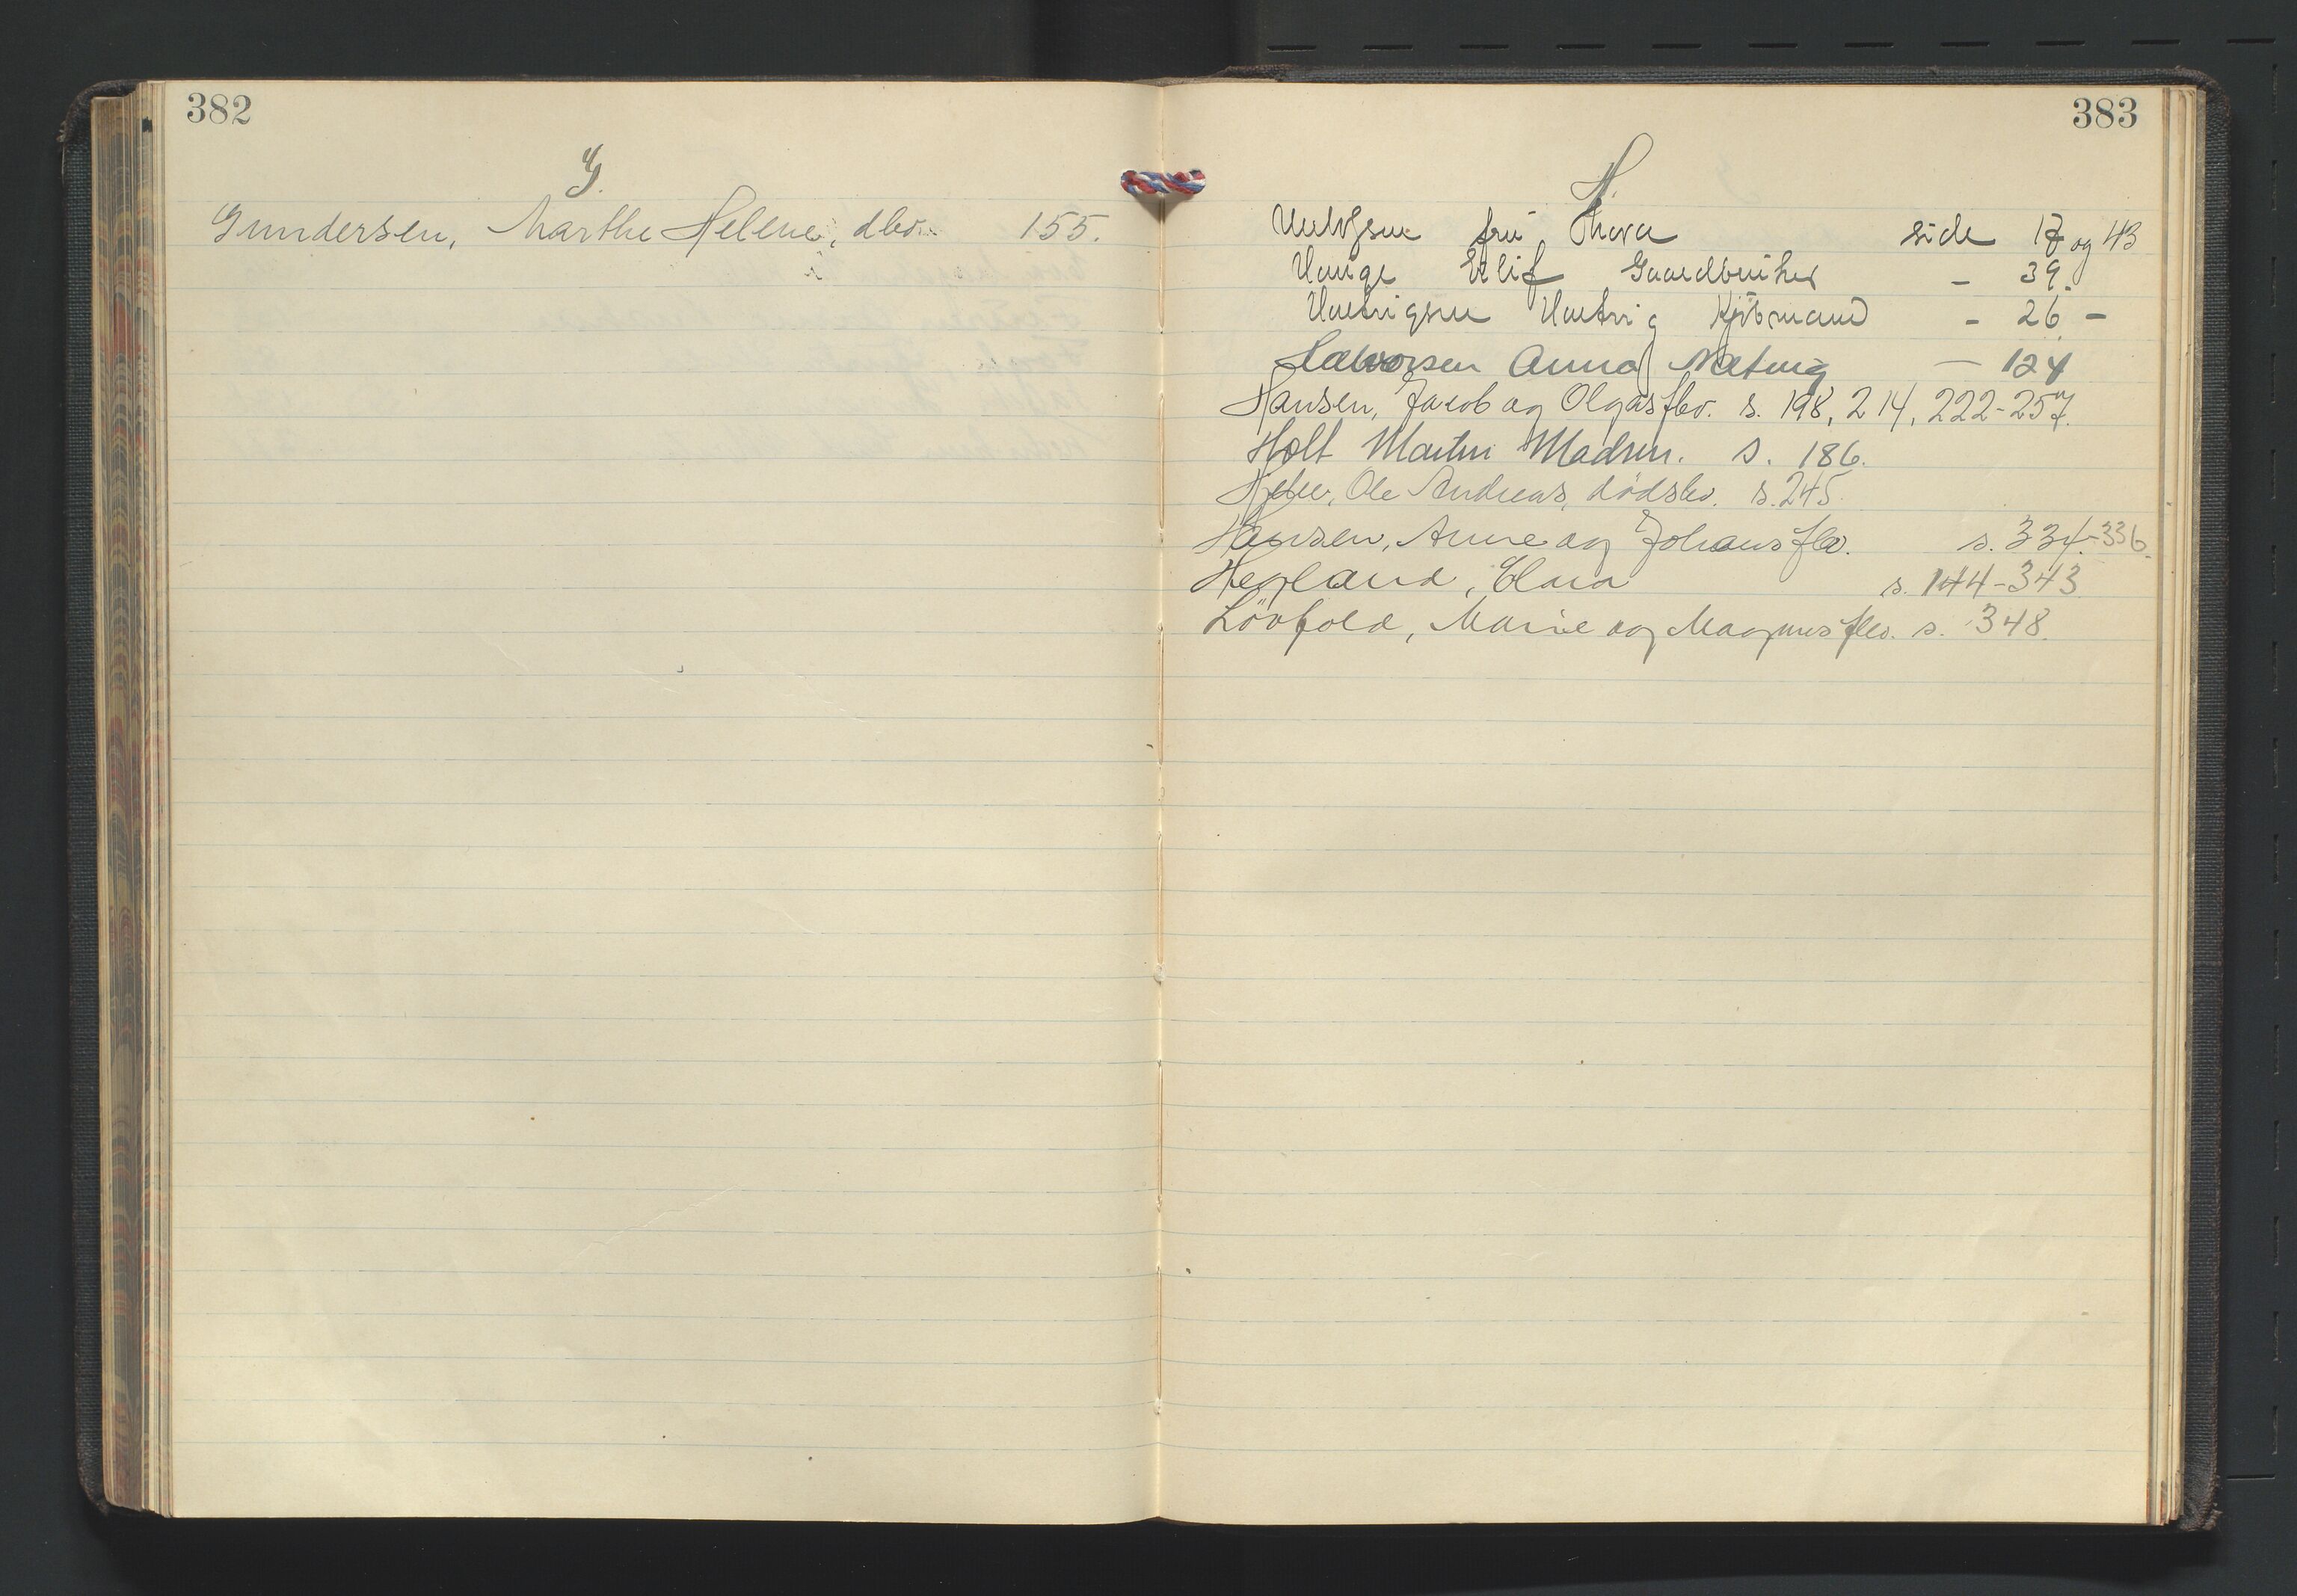 382
G.
Gundersen, Marthe Helene, dbo. 155.
383
H.
fru Thora side 17 og 43
Hauge Eilif Gaardbruker - 39.
Hartvigsen Hartvig Kjöbmand - 26 -
Halvorsen Anna - 124
Hansen, Jacob og Olgas flbo. s. 198, 214, 222-257.
Holt Martin Madsen. s. 186.
Ole Andreas, dödsbo. s. 245.
Hansen, Anne og Johans flbo. s. 334.-336.
Hegland, Clara s. 144-343
Lövfold, Marie og Magnus flbo. s. 348.